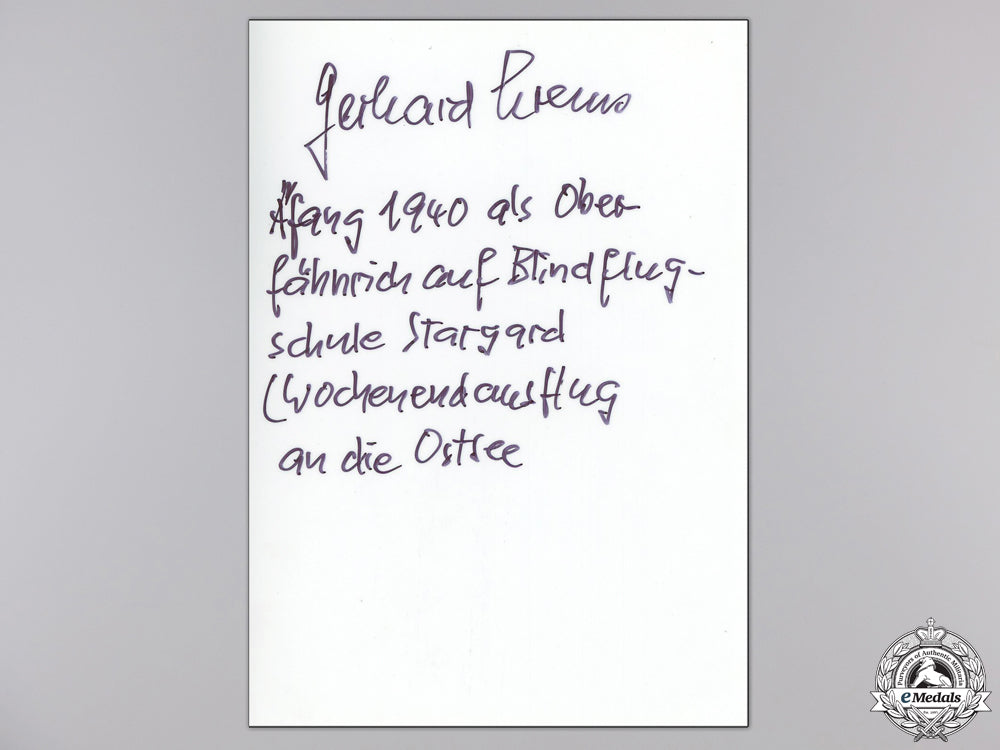 Gerhard Krems
Anfang 1940 als Ober-
fähnrich auf Blindflug-
schule Stargard
(Wochenendausflug
an die Ostsee
Purveyors of Authentic Militaria
eMedals